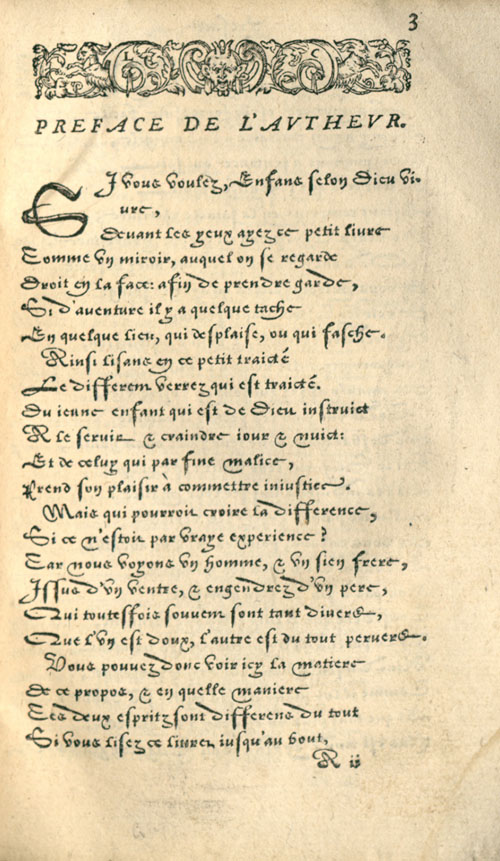 3
PREFACE DE L'AVTHEVR.
SI vous voulez, Enfans selon Dieu vi-
ure,
Devant les yeux ayez ce petit livre
Comme vn miroir, auquel on se regarde
Droit en la face: afin de prendre garde,
Si d'aventure il y a quelque tache
En quelque lieu, qui desplaise, ou qui fasche.
Ainsi lisans en ce petit traicté
Le different verrez qui est traicté.
Du ieune enfant qui est de Dieu instruict
A le servir & craindre iour & nuict:
Et de celuy qui par fine malice,
Prend son plaisir à commettre iniustice.
Mais qui pourroit croire la difference,
Si ce n'estoit par vraye experience?
Car nous voyons vn homme, & vn sien frere,
Issus d'vn ventre, & engendrez d'vn pere,
Qui toutesfois souvent sont tant divers,
Que l'vn est doux, l'autre est du tout pervers.
Vous pouvez donc voir icy la matiere
De ce propos, & en quelle maniere
Ces deux espritz sont differens du tout
Si vous lisez ce livret iusqu'au bout,
A ii